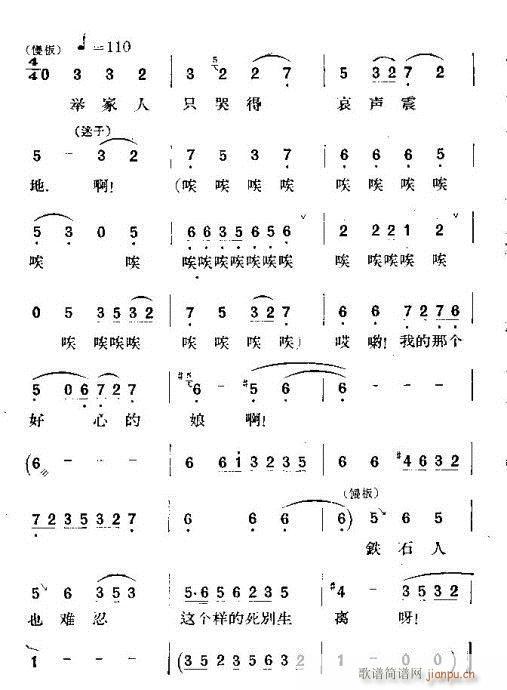 (慢板) ♩=110
4/4 0 3 3 2 | 3 5 2 2 7 | 5 3 2 7 2 |
举 家 人 只 哭 得 哀 声 震
(迷子)
5 - 3 2 | 7 5 3 7 | 6 6 6 5 |
地. 啊! (唉 唉 唉 唉 唉 唉 唉 唉
5 3 0 5 | 6 6 3 5 6 5 6 | 2 2 2 1 2 |
唉 唉 唉唉唉唉唉唉唉 唉唉唉唉唉
0 5 3 5 3 2 | 7 5 3 2 7 | 6 6 7 2 7 6 |
唉 唉唉唉 唉 唉 唉 唉) 哎 哟! 我的那个
5 0 6 7 2 7 | #5 6 - #5 6 |
好 心的 娘 啊!
(6 - - - | 6 6 1 3 2 3 5 | 6 6 #4 6 3 2 |
(慢板)
7 2 3 5 3 2 7 | 6 6 6 6 | 6) 5 6 5 |
鉄 石 人
5 6 3 5 3 | 5·6 5 6 2 3 5 | #4 - 3 5 3 2 |
也 难 忍 这个样的死别生 离 呀!
1 - - - | (3 5 2 3 5 5
歌谱简谱网
jianpu.cn